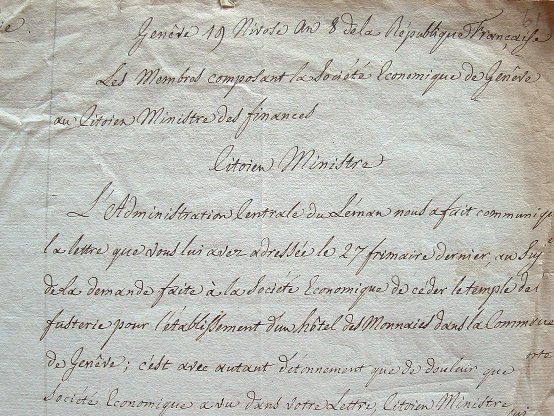 ie.
61
Genêve 19 Nivose An 8 de la République Française
Les Membres composant la Société Economique de Genêve
au Citoien Ministre des finances
Citoien Ministre
L'Administration Centrale du Léman nous a fait communiqu
la lettre que vous lui avez adressée le 27 frimaire dernier, au Suj
de la demande faite à la Société Economique de céder le temple de
fusterie pour l'établissement d'un hôtel des Monnaies dans la Commune
de Genêve; c'est avec autant d'étonnement que de douleur que
orte
Société Economique a vu dans votre Lettre, Citoien Ministre